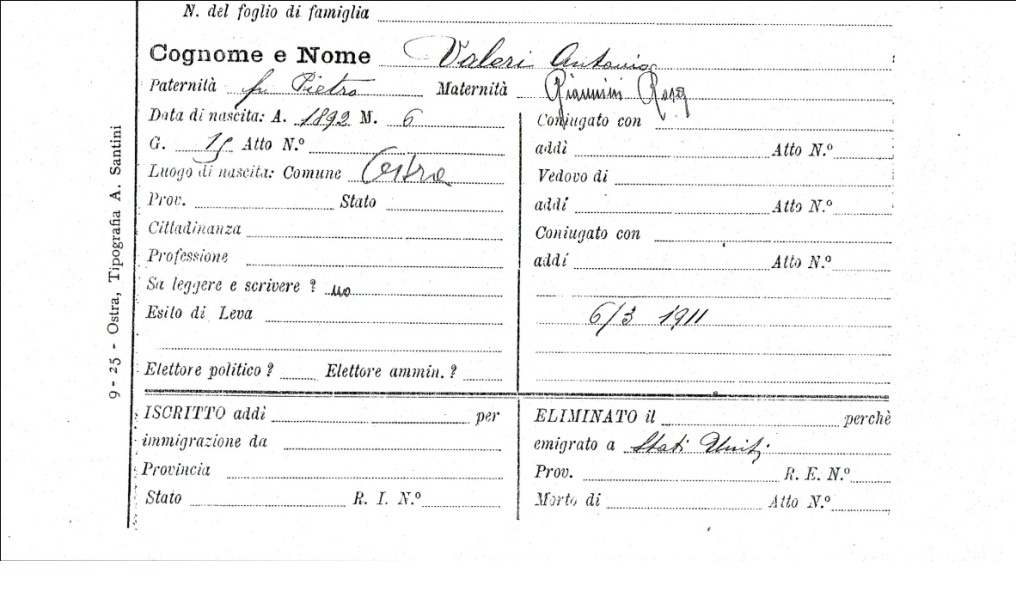 N. del foglio di famiglia
Cognome e Nome Valeri Antonio
Paternità fu Pietro Maternità Giannini Rosa
Data di nascita: A. 1892 M. 6
G. 15 Atto N.º
Luogo di nascita: Comune Ostra
Prov. Stato
Cittadinanza
Professione
Sa leggere e scrivere ? no
Esito di Leva
Elettore politico ? Elettore ammin. ?
Coniugato con
addì Atto N.º
Vedovo di
addì Atto N.º
Coniugato con
addì Atto N.º
6/3 1911
ISCRITTO addì per
immigrazione da
Provincia
Stato R. I. N.º
ELIMINATO il perchè
emigrato a Stati Uniti
Prov. R. E. N.º
Morto di Atto N.º
9 - 25 - Ostra, Tipografia A. Santini